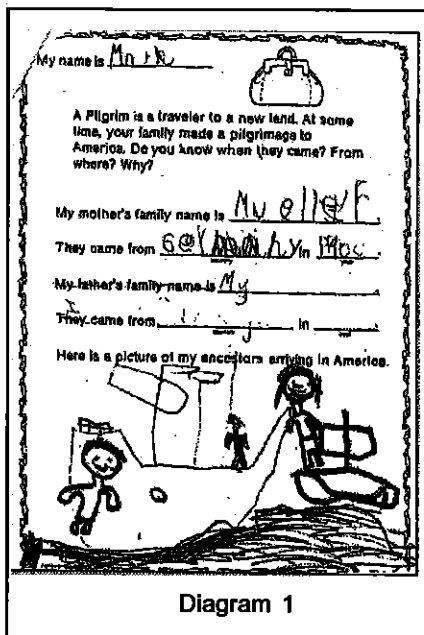 My name is Mark
A Pilgrim is a traveler to a new land. At some
time, your family made a pilgrimage to
America. Do you know when they came? From
where? Why?
My mother's family name is
They came from in
country year
My father's family name is My
They came from in
country year
Here is a picture of my ancestors arriving in America.
Diagram 1